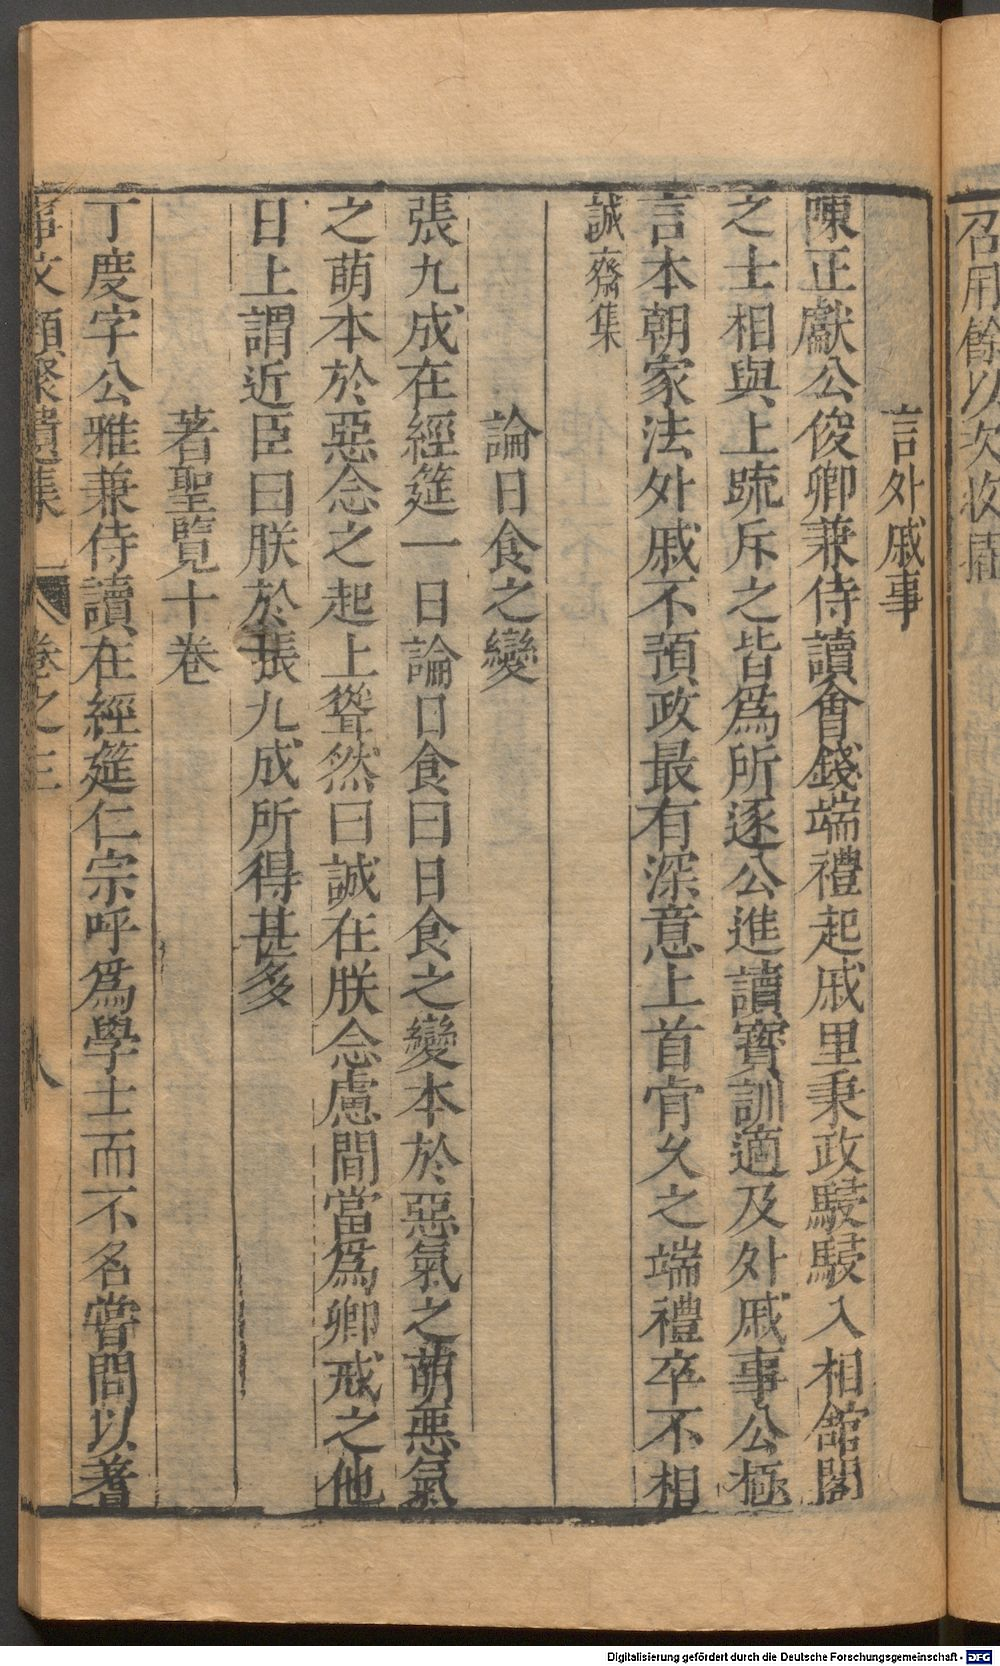 言外戚事
陳正獻公俊卿兼侍讀會錢端禮起戚里秉政駸駸入相館閣
之士相與上疏斥之皆爲所逐公進讀寶訓適及外戚事公極
言本朝家法外戚不預政最有深意上首肯久之端禮卒不相
誠齋集
論日食之變
張九成在經筵一日論日食曰日食之變本於惡氣之萌惡氣
之萌本於惡念之起上聳然曰誠在朕念慮間當爲卿戒之他
日上謂近臣曰朕於張九成所得甚多
著聖覽十卷
丁度字公雅兼侍讀在經筵仁宗呼爲學士而不名嘗問以蓍
事文類聚遺集 卷之三 八
Digitalisierung gefördert durch die Deutsche Forschungsgemeinschaft - DFG